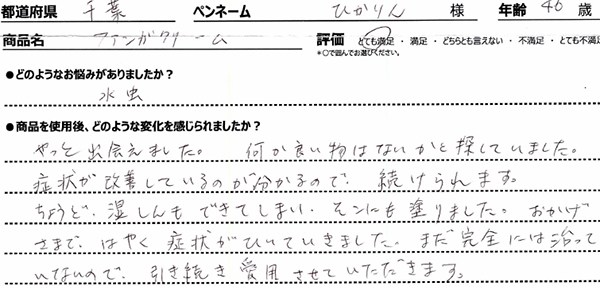 都道府県 千葉 ペンネーム ひかりん 様 年齢 46 歳
商品名 ファンガクリーム 評価 とても満足・満足・どちらとも言えない・不満足・とても不満
*○で囲んでお選びください。
●どのようなお悩みがありましたか？
水虫
●商品を使用後、どのような変化を感じられましたか？
やっと出会えました。 何か良い物はないかと探していました。
症状が改善しているのが分かるので、続けられます。
ちょうど、湿しんもできてしまい、そこにも塗りました。おかげ
さまで、はやく症状がひいていきました。まだ完全には治って
いないので、引き続き愛用させていただきます。